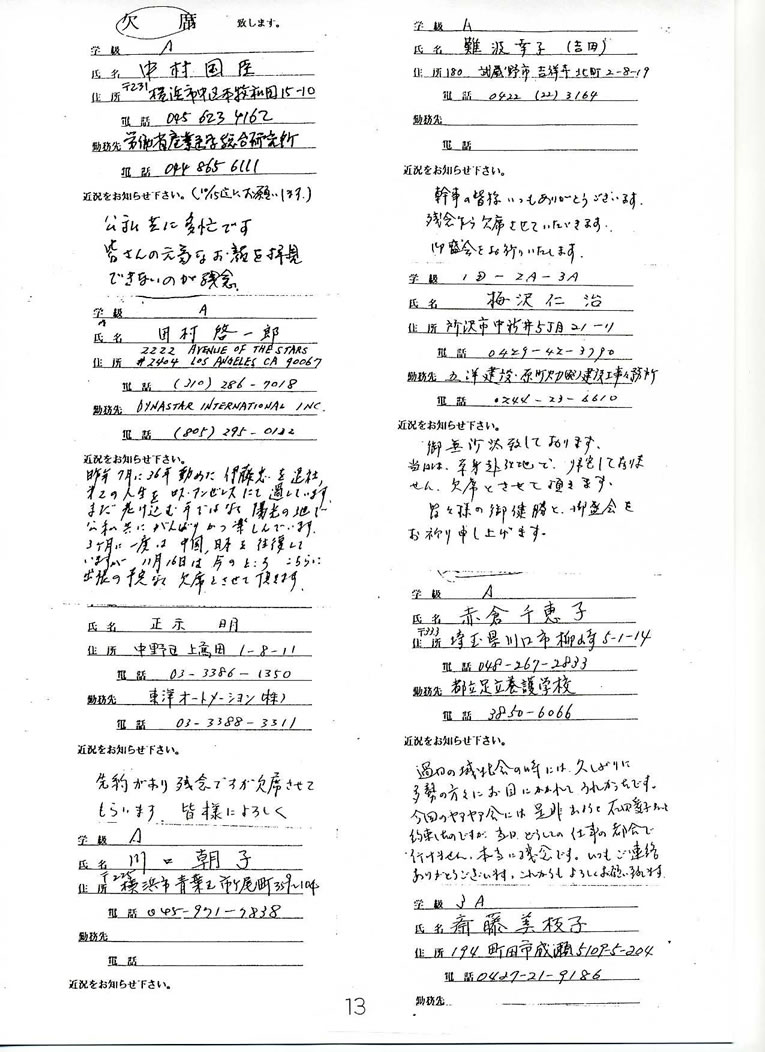 欠席 致します。
学級 A
氏名 中村国臣
住所 〒231 横浜市中区本牧和田15-10
電話 045 623 4162
勤務先 労働省産業医学総合研究所
電話 044 865 6111
近況をお知らせ下さい。(10/15迄にお願いします.)
公私共に多忙です
皆さんの元気なお顔を拝見
できないのが残念.
学級 A
氏名 田村啓一郎
住所 2222 AVENUE OF THE STARS
#2404 LOS ANGELES CA 90067
電話 (310) 286-7018
勤務先 DYNASTAR INTERNATIONAL INC.
電話 (805) 295-0122
近況をお知らせ下さい。
昨年7月に36年勤めた伊藤忠を退社,
第2の人生をロス・アンゼルスにて過しています.
まだ老け込む年ではなく陽光の地で
公私共にがんばりかつ楽しんでいます.
3ヶ月に一度は中国,日本を往復して
いますが 11月16日は今のところこちらに
出張の予定なく欠席とさせて頂きます.
氏名 正示 明
住所 中野区上高田1-8-11
電話 03-3386-1350
勤務先 東洋オートメーション(株)
電話 03-3388-3311
近況をお知らせ下さい。
先約があり残念ですが欠席させて
もらいます 皆様によろしく
学級 A
氏名 川口朝子
住所 〒225 横浜市青葉区市ヶ尾町359-104
電話 045-971-7838
勤務先
電話
近況をお知らせ下さい。
学級 A
氏名 難波幸子(吉田)
住所 180 武蔵野市吉祥寺北町2-8-19
電話 0422 (22) 3164
勤務先
電話
近況をお知らせ下さい。
幹事の皆様いつもありがとうございます.
残念乍ら欠席させていただきます.
御盛会をお祈りいたします.
学級 1D-2A-3A
氏名 梅沢仁治
住所 所沢市中新井5丁目21-11
電話 0429-42-3790
勤務先 五洋建設・原町火力(発)建設工事事務所
電話 0244-23-6610
近況をお知らせ下さい。
御無沙汰致しております.
当日は、単身赴任地で、帰宅しておりま
せん、欠席とさせて頂きます.
皆々様の御健勝と、御盛会を
お祈り申し上げます.
学級 A
氏名 赤倉千恵子
住所 〒333 埼玉県川口市柳崎5-1-14
電話 048-267-2833
勤務先 都立足立養護学校
電話 3850-6066
近況をお知らせ下さい。
過日の城北会の時には、久しぶりに
多勢の方々にお目にかかれてうれしかったです。
今回のヤアヤア会には是非出ようと石田愛子さんと
約束したのですが、当日、どうしても仕事の都合で
行けません、本当に残念です。いつもご連絡
ありがとうございます。これからもよろしくお願い致します
学級 3A
氏名 斎藤美枝子
住所 194 町田市成瀬5109-5-204
電話 0427-21-9186
勤務先
13